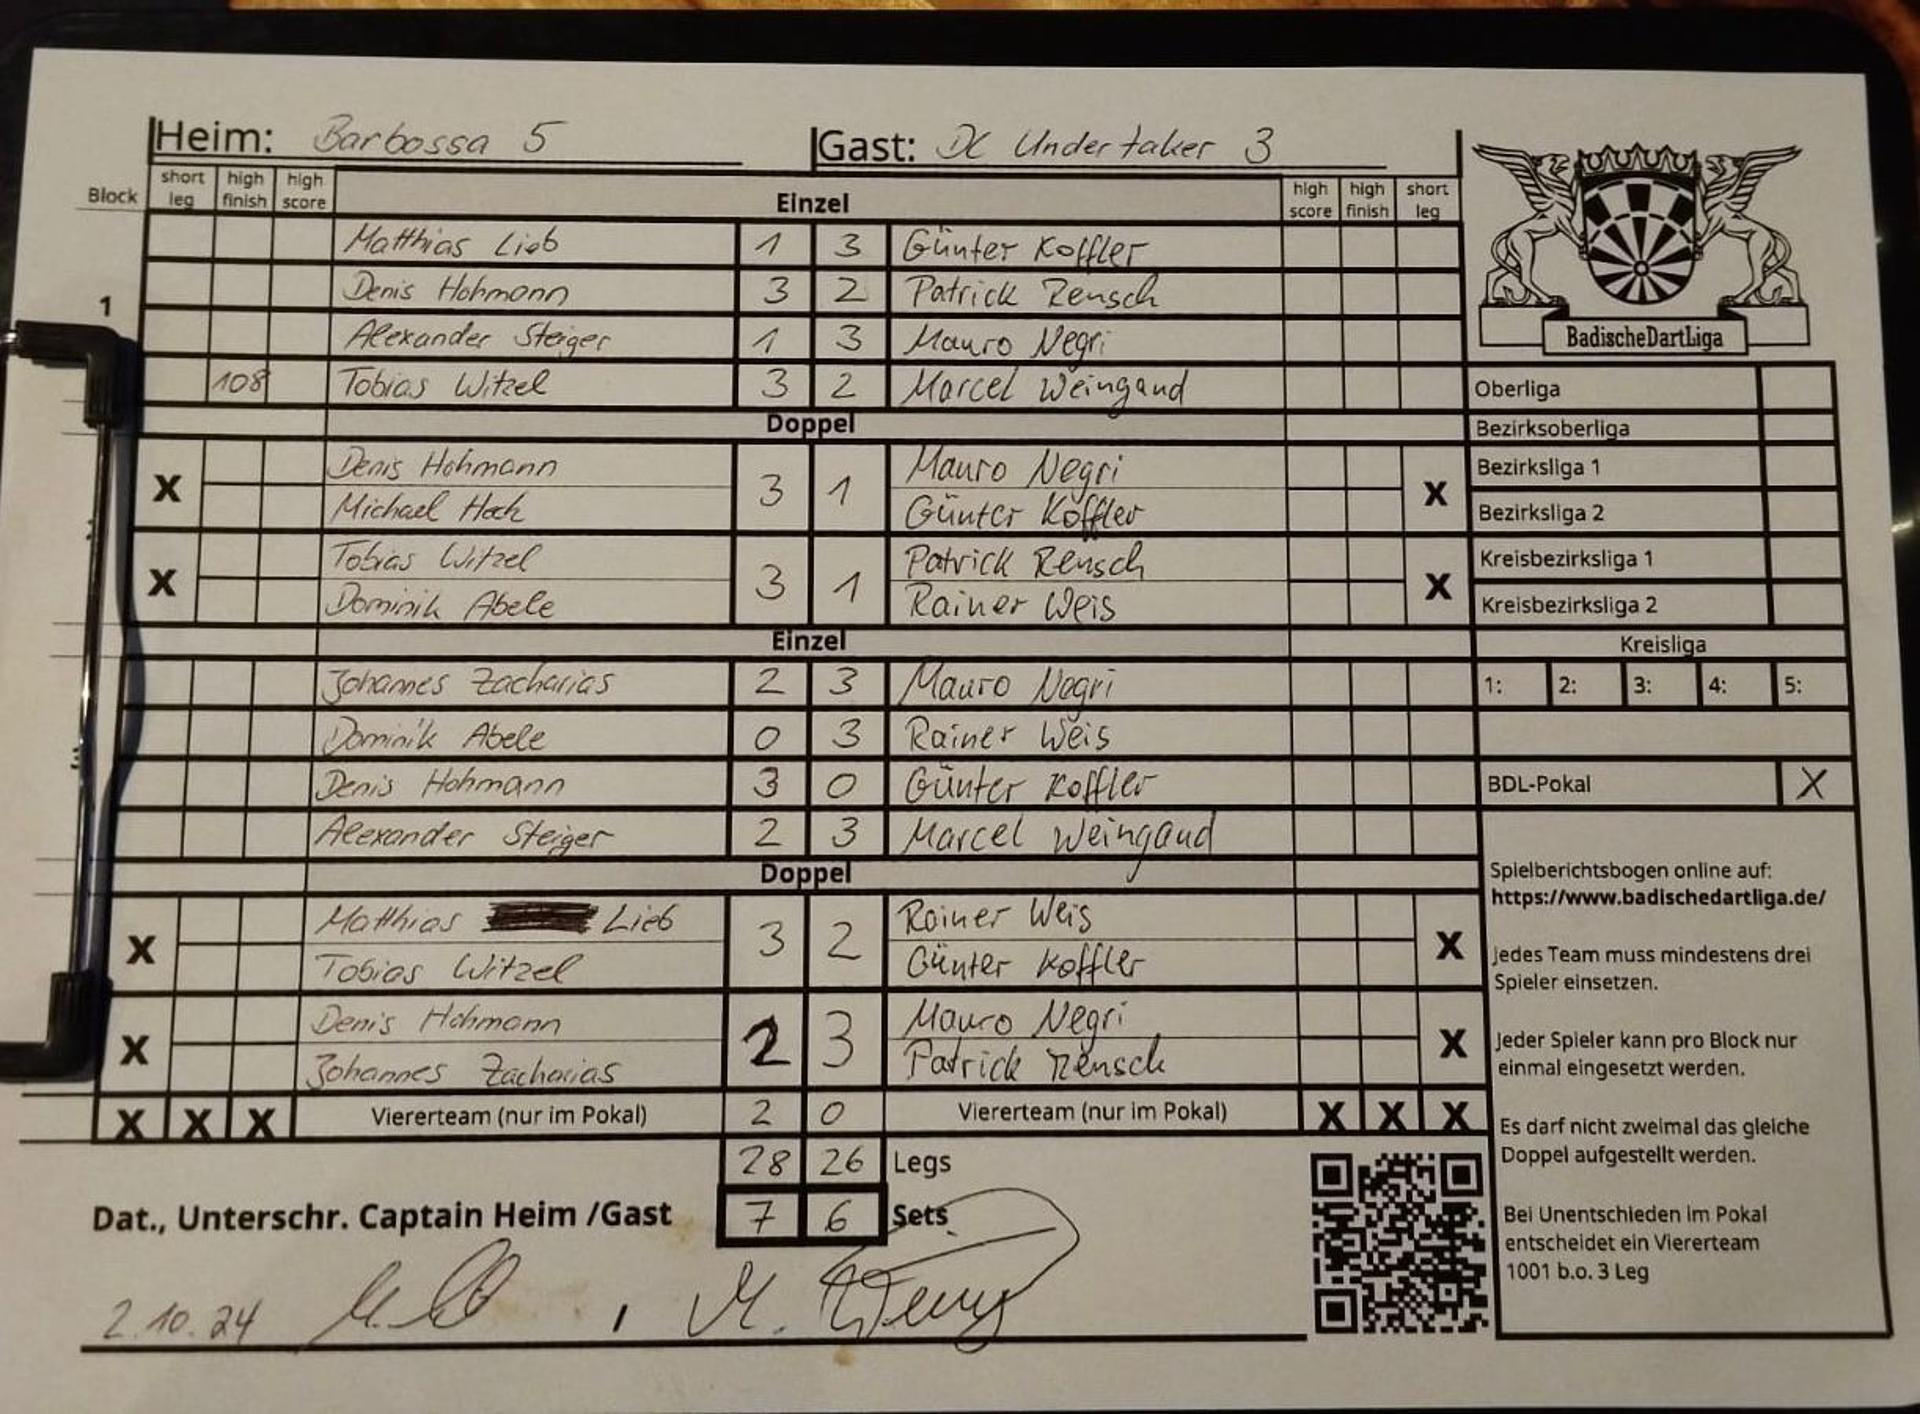 Heim: Barbossa 5 Gast: DC Undertaker 3
Block short leg high finish high score Einzel high score high finish short leg
Matthias Lieb 1 3 Günter Koffler
1 Denis Hohmann 3 2 Patrick Rensch
Alexander Steiger 1 3 Mauro Negri
108 Tobias Witzel 3 2 Marcel Weingand
Doppel
X Denis Hohmann 3 1 Mauro Negri X
Michael Hock Günter Koffler
X Tobias Witzel 3 1 Patrick Rensch X
Dominik Abele Rainer Weis
Einzel
Johannes Zacharias 2 3 Mauro Negri
Dominik Abele 0 3 Rainer Weis
3 Denis Hohmann 3 0 Günter Koffler
Alexander Steiger 2 3 Marcel Weingand
Doppel
X Matthias Lieb 3 2 Rainer Weis X
Tobias Witzel Günter Koffler
X Denis Hohmann 2 3 Mauro Negri X
Johannes Zacharias Patrick Rensch
X X X Viererteam (nur im Pokal) 2 0 Viererteam (nur im Pokal) X X X
28 26 Legs
Dat., Unterschr. Captain Heim /Gast 7 6 Sets
2.10.24
BadischeDartLiga
Oberliga
Bezirksoberliga
Bezirksliga 1
Bezirksliga 2
Kreisbezirksliga 1
Kreisbezirksliga 2
Kreisliga
1: 2: 3: 4: 5:
BDL-Pokal X
Spielberichtsbogen online auf:
https://www.badischedartliga.de/
Jedes Team muss mindestens drei
Spieler einsetzen.
Jeder Spieler kann pro Block nur
einmal eingesetzt werden.
Es darf nicht zweimal das gleiche
Doppel aufgestellt werden.
Bei Unentschieden im Pokal
entscheidet ein Viererteam
1001 b.o. 3 Leg